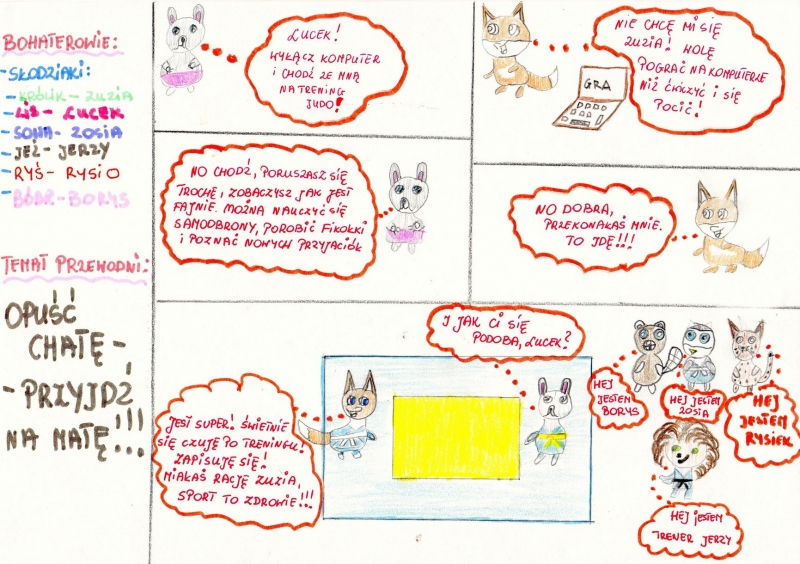 BOHATEROWIE:
- SŁODZIAKI:
- KRÓLIK - ZUZIA
- LIS - LUCEK
- SOWA - ZOSIA
- JEŻ - JERZY
- RYŚ - RYSIO
- BÓBR - BORYS
TEMAT PRZEWODNI:
OPUŚĆ
CHATĘ -
- PRZYJDŹ
NA MATĘ!!!
LUCEK!
WYŁĄCZ KOMPUTER
I CHODŹ ZE MNĄ
NA TRENING
JUDO!
NIE CHCĘ MI SIĘ
ZUZIA! WOLĘ
POGRAĆ NA KOMPUTERZE
NIŻ ĆWICZYĆ I SIĘ
POCIĆ!
GRA
NO CHODŹ, PORUSZASZ SIĘ
TROCHĘ, ZOBACZYSZ JAK JEST
FAJNIE. MOŻNA NAUCZYĆ SIĘ
SAMOOBRONY, POROBIĆ FIKOŁKI
I POZNAĆ NOWYCH PRZYJACIÓŁ
NO DOBRA,
PRZEKONAŁAŚ MNIE.
TO IDĘ!!!
I JAK CI SIĘ
PODOBA, LUCEK?
JEST SUPER! ŚWIETNIE
SIĘ CZUJĘ PO TRENINGU!
ZAPISUJĘ SIĘ!
MIAŁAŚ RACJĘ ZUZIA,
SPORT TO ZDROWIE!!!
HEJ
JESTEM
BORYS
HEJ JESTEM
ZOSIA
HEJ
JESTEM
RYSIEK
HEJ JESTEM
TRENER JERZY